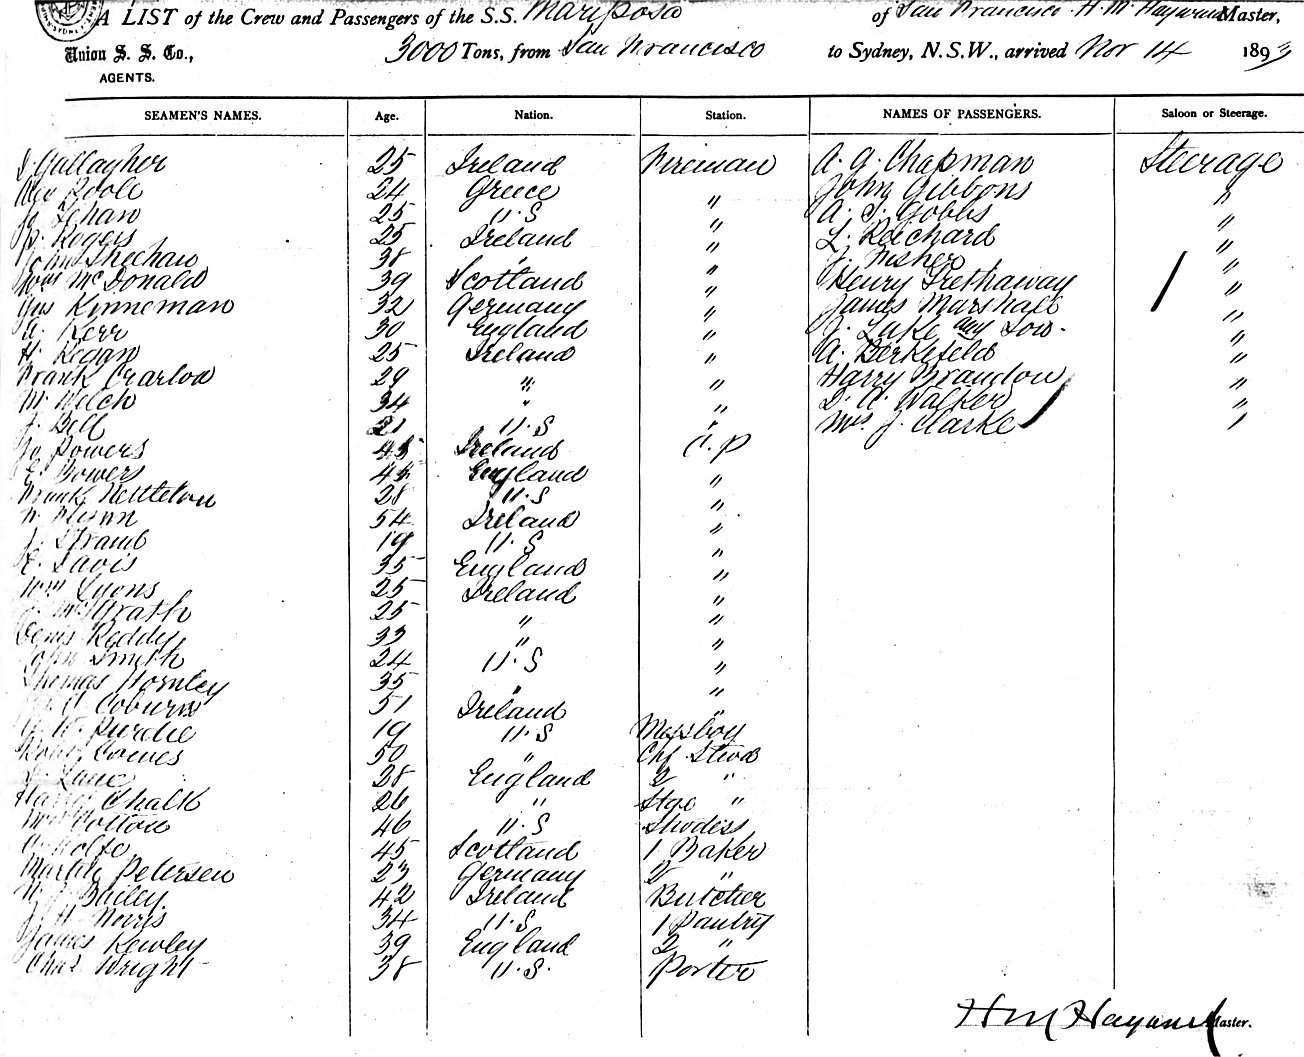 A LIST of the Crew and Passengers of the S.S. Mariposa of San Francisco H. M. Hayward Master,
Union S. S. Co.,
AGENTS.
3000 Tons, from San Francisco to Sydney, N.S.W., arrived Nov 14 1893
SEAMEN'S NAMES. Age. Nation. Station. NAMES OF PASSENGERS. Saloon or Steerage.
Gallagher 25 Ireland Fireman A. G. Chapman Steerage
24 Greece " John Gibbons "
25 U.S " A. Gobbs "
P. Rogers 25 Ireland " L. "
John Sheehan 38 " " J. Fisher "
McDonald 39 Scotland " Henry Trethaway "
Gus Kinneman 32 Germany " James Marshall "
A. Kerr 30 England " J. Lake "
H. Kegan 25 Ireland " A. Berkefeld "
Frank 29 " " Harry Brandon "
M. Welch 34 " " D. A. Walker "
J. Bell 21 U.S " Mrs J. Clarke "
Powers 45 Ireland C.P
E. Bowers 45 England "
Frank Nettleton 28 U.S "
Flynn 54 Ireland "
J. 19 U.S "
E. Davis 35 England "
Wm Lyons 25 Ireland "
McGrath 25 " "
Denis Reddy 33 " "
John Smith 24 U.S "
Thomas Hornley 35 " "
Coburn 51 Ireland "
Purdie 19 U.S Messboy
50 " Chf Stwd
Lane 28 England 2 "
Harry Chalk 26 " Stge "
Mrs Colton 46 U.S Stwdiss
45 Scotland 1 Baker
Martin Petersen 23 Germany 2 "
Bailey 42 Ireland Butcher
J. H. Norris 34 U.S 1 Pantry
James Kewley 39 England 2 "
Chas Wright 38 U.S. Porter
H M Hayward Master.